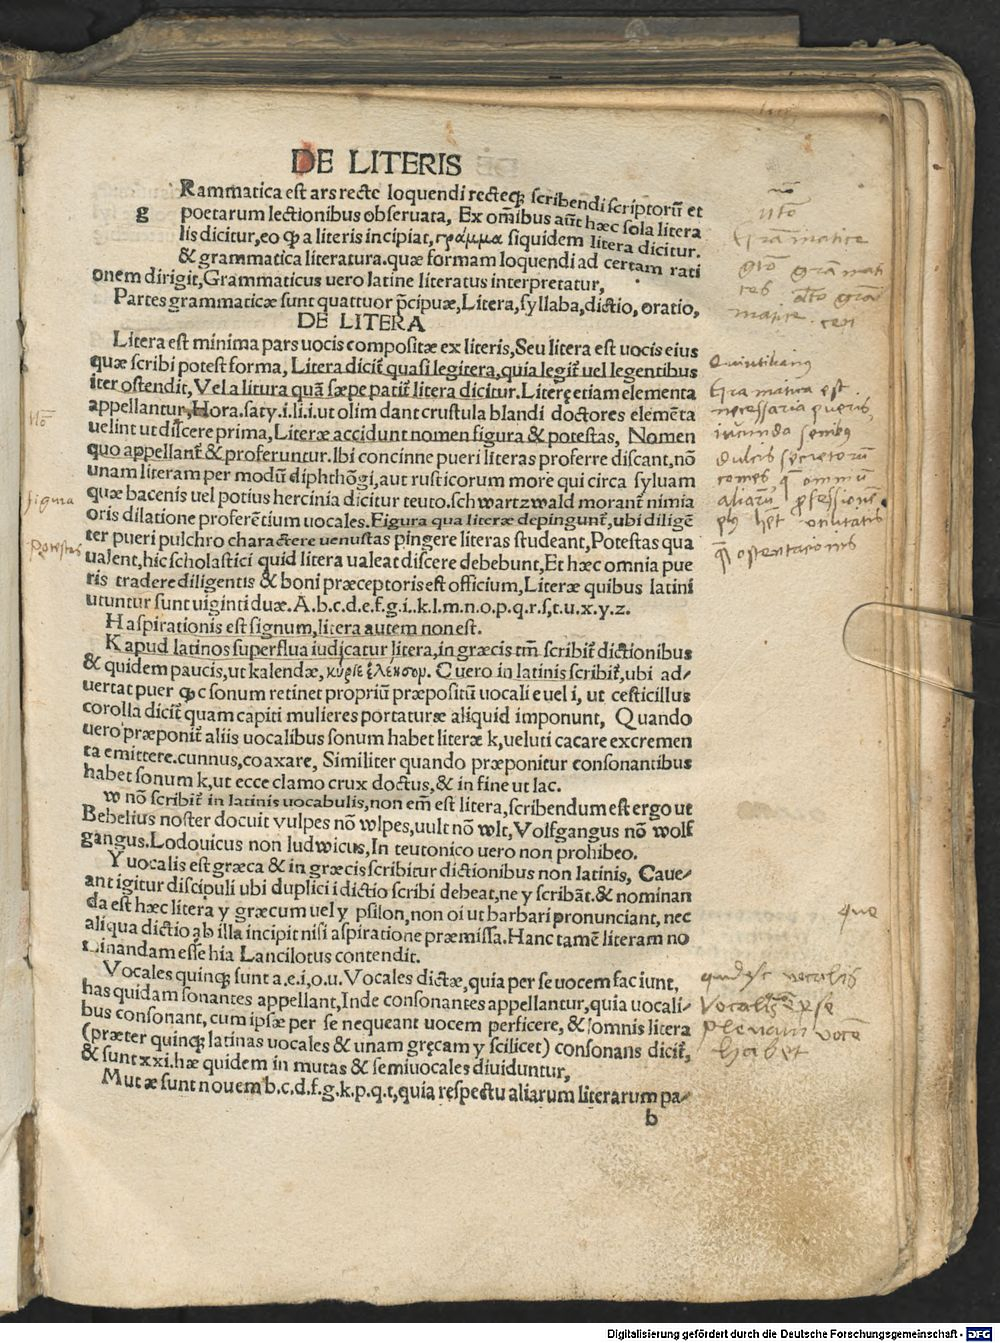 DE LITERIS
gRammatica est ars recte loquendi recteq; scribendi scriptorū et
poetarum lectionibus obseruata, Ex om̄ibus aūt hæc sola litera
lis dicitur, eo ꝙ a literis incipiat, γράμμα siquidem litera dicitur.
& grammatica literatura. quæ formam loquendi ad certam rati
onem dirigit, Grammaticus uero latine literatus interpretatur,
Partes grammaticæ sunt quattuor p̄cipuæ, Litera, syllaba, dictio, oratio,
DE LITERA
Litera est minima pars uocis compositæ ex literis, Seu litera est uocis eius
quæ scribi potest forma, Litera dicit᷑ quasi legitera, quia legit᷑ uel legentibus
iter ostendit, Vel a litura quā sæpe patit᷑ litera dicitur. Literę etiam elementa
appellantur, Hora. saty. i. li. i. ut olim dant crustula blandi doctores elemēta
uelint ut discere prima, Literæ accidunt nomen figura & potestas, Nomen
quo appellant᷑ & proferuntur. Ibi concinne pueri literas proferre discant, nō
unam literam per modū diphthōgi, aut rusticorum more qui circa syluam
quæ bacenis uel potius hercinia dicitur teuto. schwartzwald morant᷑ nimia
oris dilatione proferētium uocales. Figura qua literæ depingunt᷑, ubi diligē
ter pueri pulchro charactere uenustas pingere literas studeant, Potestas qua
ualent, hic scholastici quid litera ualeat discere debebunt, Et hæc omnia pue
ris tradere diligentis & boni præceptoris est officium, Literæ quibus latini
utuntur sunt uiginti duæ. A. b. c. d. e. f. g. i. k. l. m. n. o. p. q. r. s, t. u. x. y. z.
H aspirationis est signum, litera autem non est.
K apud latinos superflua iudicatur litera, in græcis tm̄ scribit᷑ dictionibus
& quidem paucis, ut kalendæ, κύριε ἐλέησον. C uero in latinis scribit᷑, ubi ad-
vertat puer ꝙ c sonum retinet propriū præpositū uocali e uel i, ut cesticillus
corolla dicit᷑ quam capiti mulieres portaturæ aliquid imponunt, Quando
uero præponit᷑ aliis uocalibus sonum habet literæ k, ueluti cacare excremen
ta emittere. cunnus, coaxare, Similiter quando præponitur consonantibus
habet sonum k, ut ecce clamo crux doctus, & in fine ut lac.
w nō scribit᷑ in latinis uocabulis, non em̄ est litera, scribendum est ergo ut
Bebelius noster docuit vulpes nō wlpes, uult nō wlt, Volfgangus nō wolf
gangus. Lodouicus non ludwicus, In teutonico uero non prohibeo.
Y uocalis est græca & in græcis scribitur dictionibus non latinis, Caue-
ant igitur discipuli ubi duplici i dictio scribi debeat, ne y scribāt. & nominan
da est hæc litera y græcum uel y psilon, non oi ut barbari pronunciant, nec
aliqua dictio ab illa incipit nisi aspiratione præmissa. Hanc tamē literam no
minandam esse hia Lancilotus contendit.
Vocales quinq; sunt a. e. i, o. u. Vocales dictæ, quia per se uocem faciunt,
has quidam sonantes appellant, Inde consonantes appellantur, quia uocali-
bus consonant, cum ipsæ per se nequeant uocem perficere, & somnis litera
(præter quinq; latinas uocales & unam gręcam y scilicet) consonans dicit᷑,
& sunt xxi. hæ quidem in mutas & semiuocales diuiduntur,
Mutæ sunt nouem b. c. d. f. g. k. p. q. t, quia respectu aliarum literarum pa-
b
figura
Potestas
Quintilianus
Gramatica est
necessaria pueris,
iucunda senibus
dulcis secretorū
comes
aliarū professionē
utilitatis
ostentacionis
que
quid est vocalis
Vocalis per se
plenam vocē
habet
Digitalisierung gefördert durch die Deutsche Forschungsgemeinschaft - DFG